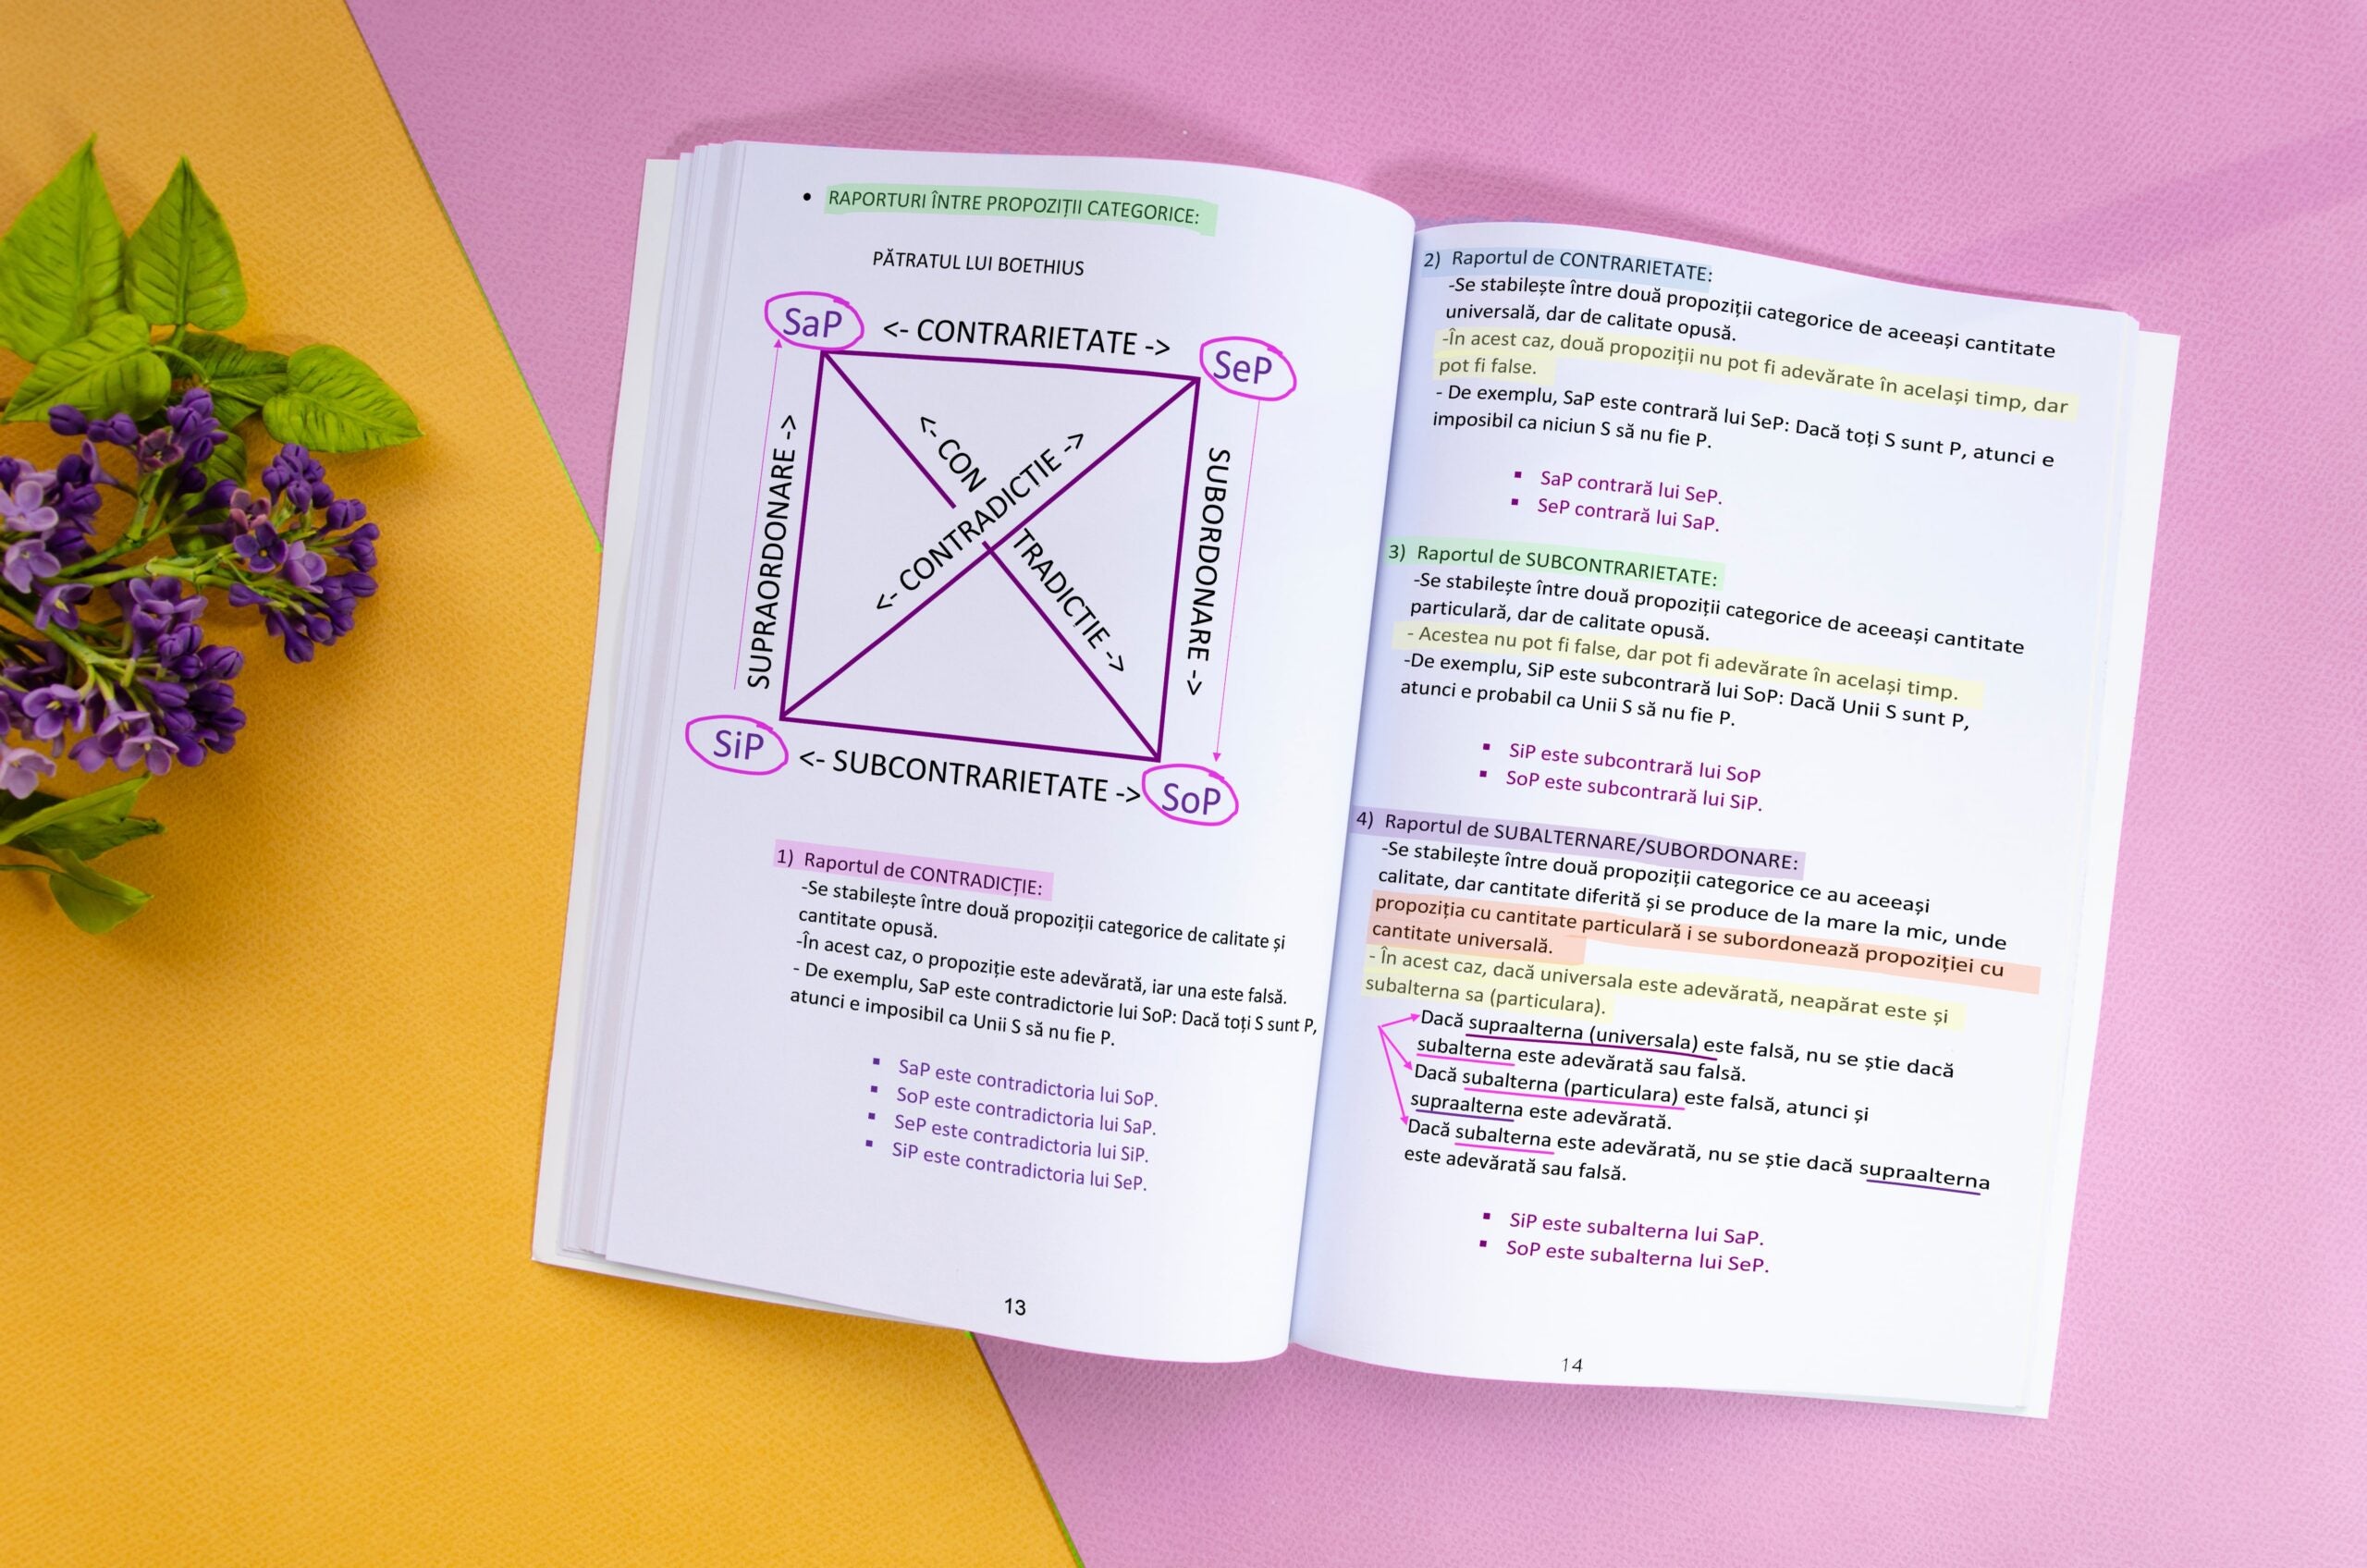 • RAPORTURI ÎNTRE PROPOZIȚII CATEGORICE:
PĂTRATUL LUI BOETHIUS
SaP
<- CONTRARIETATE ->
SeP
SUPRAORDONARE ->
<- CON
TRADICTIE ->
<- CONTRADICTIE ->
SUBORDONARE ->
SiP
<- SUBCONTRARIETATE ->
SoP
1) Raportul de CONTRADICȚIE:
-Se stabilește între două propoziții categorice de calitate și
cantitate opusă.
-În acest caz, o propoziție este adevărată, iar una este falsă.
- De exemplu, SaP este contradictorie lui SoP: Dacă toți S sunt P,
atunci e imposibil ca Unii S să nu fie P.
▪ SaP este contradictoria lui SoP.
▪ SoP este contradictoria lui SaP.
▪ SeP este contradictoria lui SiP.
▪ SiP este contradictoria lui SeP.
13
2) Raportul de CONTRARIETATE:
-Se stabilește între două propoziții categorice de aceeași cantitate
universală, dar de calitate opusă.
-În acest caz, două propoziții nu pot fi adevărate în același timp, dar
pot fi false.
- De exemplu, SaP este contrară lui SeP: Dacă toți S sunt P, atunci e
imposibil ca niciun S să nu fie P.
▪ SaP contrară lui SeP.
▪ SeP contrară lui SaP.
3) Raportul de SUBCONTRARIETATE:
-Se stabilește între două propoziții categorice de aceeași cantitate
particulară, dar de calitate opusă.
- Acestea nu pot fi false, dar pot fi adevărate în același timp.
-De exemplu, SiP este subcontrară lui SoP: Dacă Unii S sunt P,
atunci e probabil ca Unii S să nu fie P.
▪ SiP este subcontrară lui SoP
▪ SoP este subcontrară lui SiP.
4) Raportul de SUBALTERNARE/SUBORDONARE:
-Se stabilește între două propoziții categorice ce au aceeași
calitate, dar cantitate diferită și se produce de la mare la mic, unde
propoziția cu cantitate particulară i se subordonează propoziției cu
cantitate universală.
- În acest caz, dacă universala este adevărată, neapărat este și
subalterna sa (particulara).
Dacă supraalterna (universala) este falsă, nu se știe dacă
subalterna este adevărată sau falsă.
Dacă subalterna (particulara) este falsă, atunci și
supraalterna este adevărată.
Dacă subalterna este adevărată, nu se știe dacă supraalterna
este adevărată sau falsă.
▪ SiP este subalterna lui SaP.
▪ SoP este subalterna lui SeP.
14